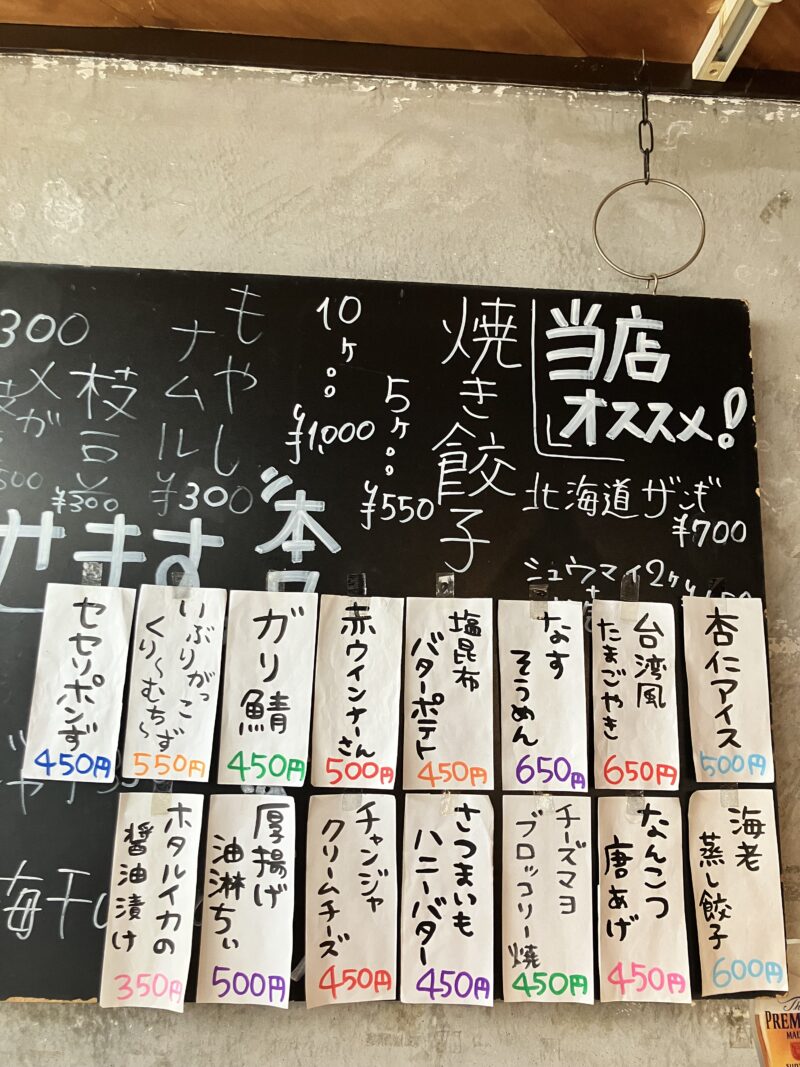 当店
オススメ!
北海道ザンギ
¥700
シュウマイ2ヶ
焼き餃子
5ヶ。。
¥550
10ヶ。。
¥1,000
もやし
ナムル
¥300
枝豆
¥300
300
せます
杏仁アイス
500円
台湾風
たまごやき
650円
なす
そうめん
650円
塩昆布
バターポテト
450円
赤ウインナーさん
500円
ガリ鯖
450円
いぶりがっこ
くり〜むち〜ず
550円
セセリポンず
450円
海老
蒸し餃子
600円
なんこつ
唐あげ
450円
チーズマヨ
ブロッコリー焼
450円
さつまいも
ハニーバター
450円
チャンジャ
クリームチーズ
450円
厚揚げ
油淋ちぃ
500円
ホタルイカの
醤油漬け
350円
梅干
PREM